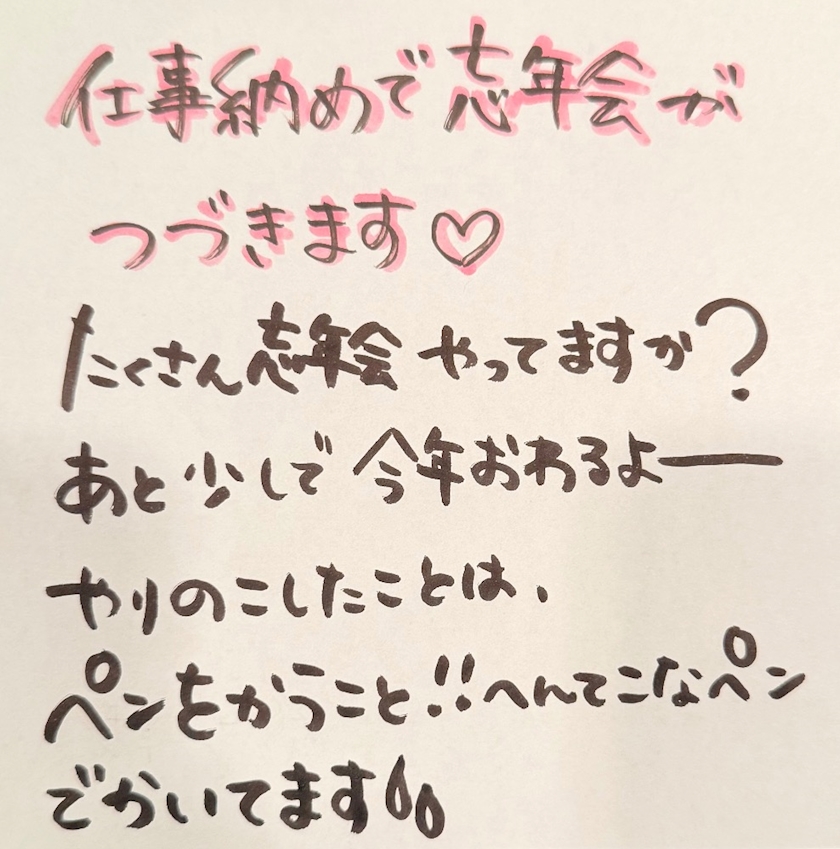 仕事納めで忘年会が
つづきます♡
たくさん忘年会やってますか?
あと少しで今年おわるよー
やりのこしたことは、
ペンをかうこと!!へんてこなペン
でかいてます